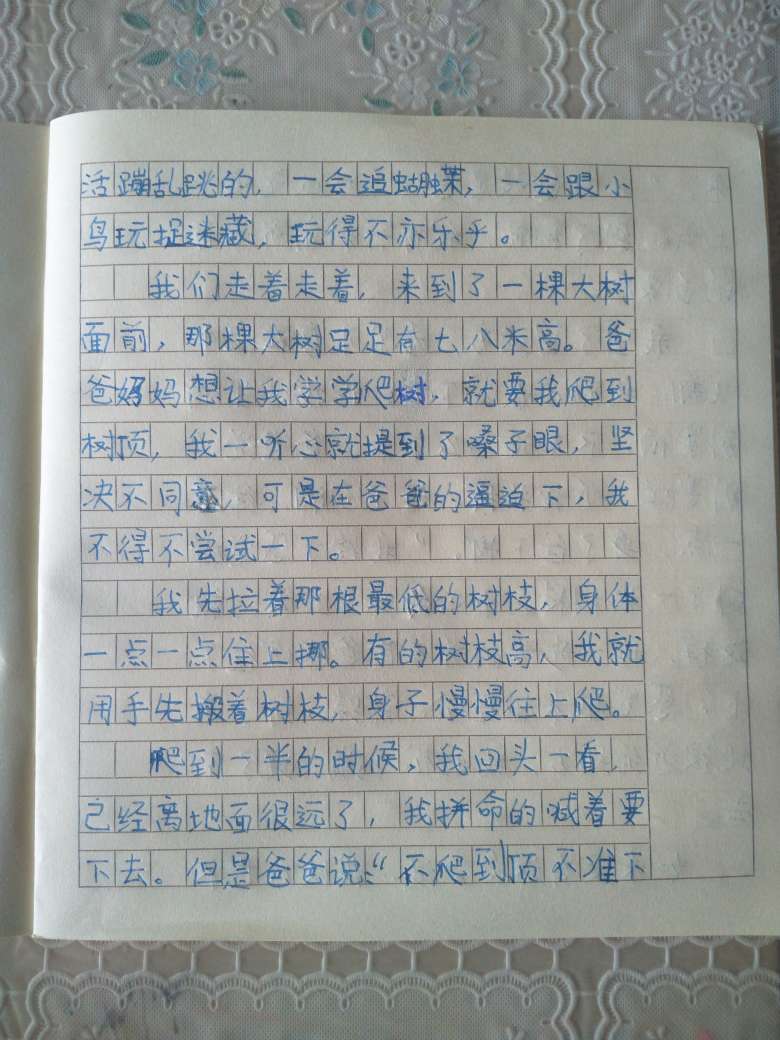 活蹦乱跳的，一会追蝴蝶，一会跟小
鸟玩捉迷藏，玩得不亦乐乎。
我们走着走着，来到了一棵大树
面前，那棵大树足足有七八米高。爸
爸妈妈想让我学学爬树，就要我爬到
树顶，我一听心就提到了嗓子眼，坚
决不同意，可是在爸爸的逼迫下，我
不得不尝试一下。
我先拉着那根最低的树枝，身体
一点一点住上挪。有的树枝高，我就
用手先搬着树枝，身子慢慢往上爬。
爬到一半的时候，我回头一看，
己经离地面很远了，我拼命的喊着要
下去。但是爸爸说：“不爬到顶不准下